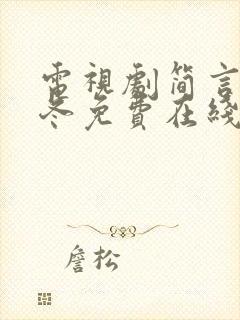 電視劇簡言
冬免費在綫
詹松